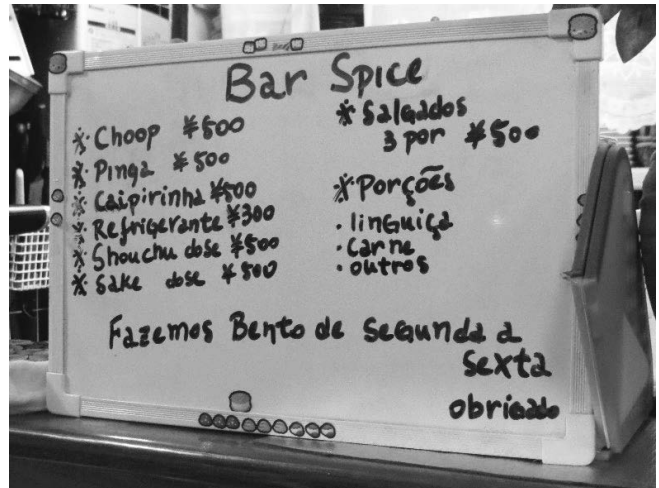 Bar Spice
※ Choop ¥500
※ Pinga ¥500
※ Caipirinha ¥500
※ Refrigerante ¥300
※ Shouchu dose ¥500
※ Sake dose ¥500
※ Salgados
3 por ¥500
※ Porções
· linguiça
· carne
· outros
Fazemos Bento de Segunda a
Sexta
obrigado